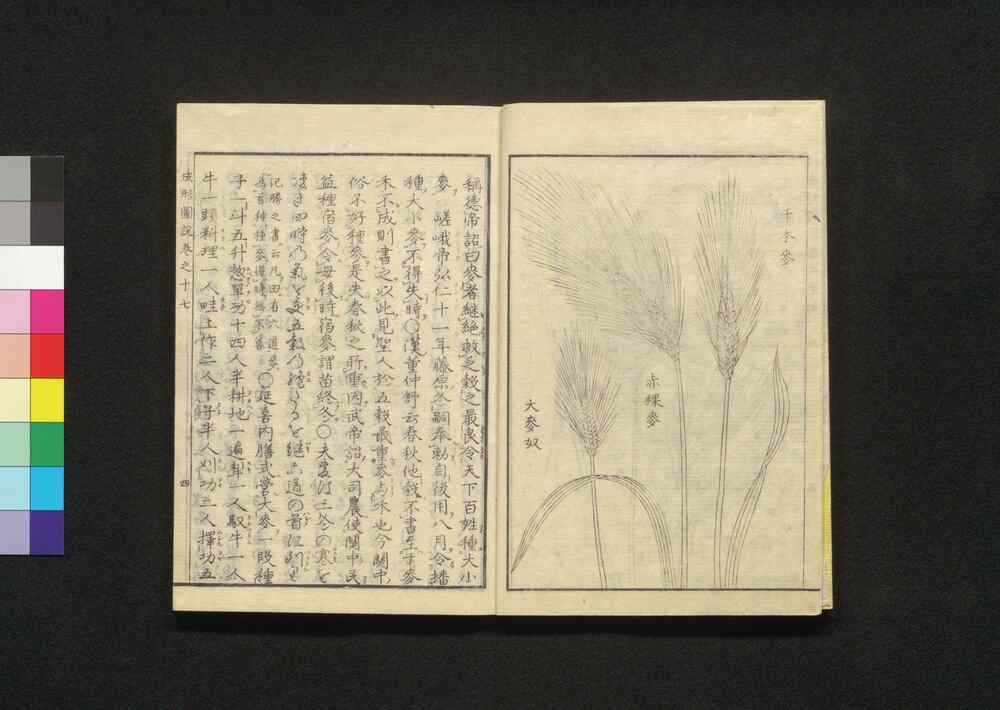 赤稞麥
大麥奴
稱德帝詔曰麥者継絶救乏穀之最良令天下百姓種大小
麥 嵯峨帝弘仁十一年藤原冬嗣奉勅自後用八月令播
種大小麥不得失時〇漢董仲舒云春秋他穀不書至于麥
禾不成則書之以此見聖人於五穀最重麥与禾也今關中
俗不好種麥是失春秋之所重因武帝詔大司農使關中民
益種宿麥令毋後時宿麥謂苗終冬〇夫麥は三冬の寒を
四時乃氣を五穀乃を継
記勝之書
〇延喜内膳式營大麥一段種
子一斗五升惣單功十四人半耕地一遍犂一人馭牛一人
牛一頭料理一人畦上作二人下子半人刈功二人擇功五
成形圖説巻之十七
四